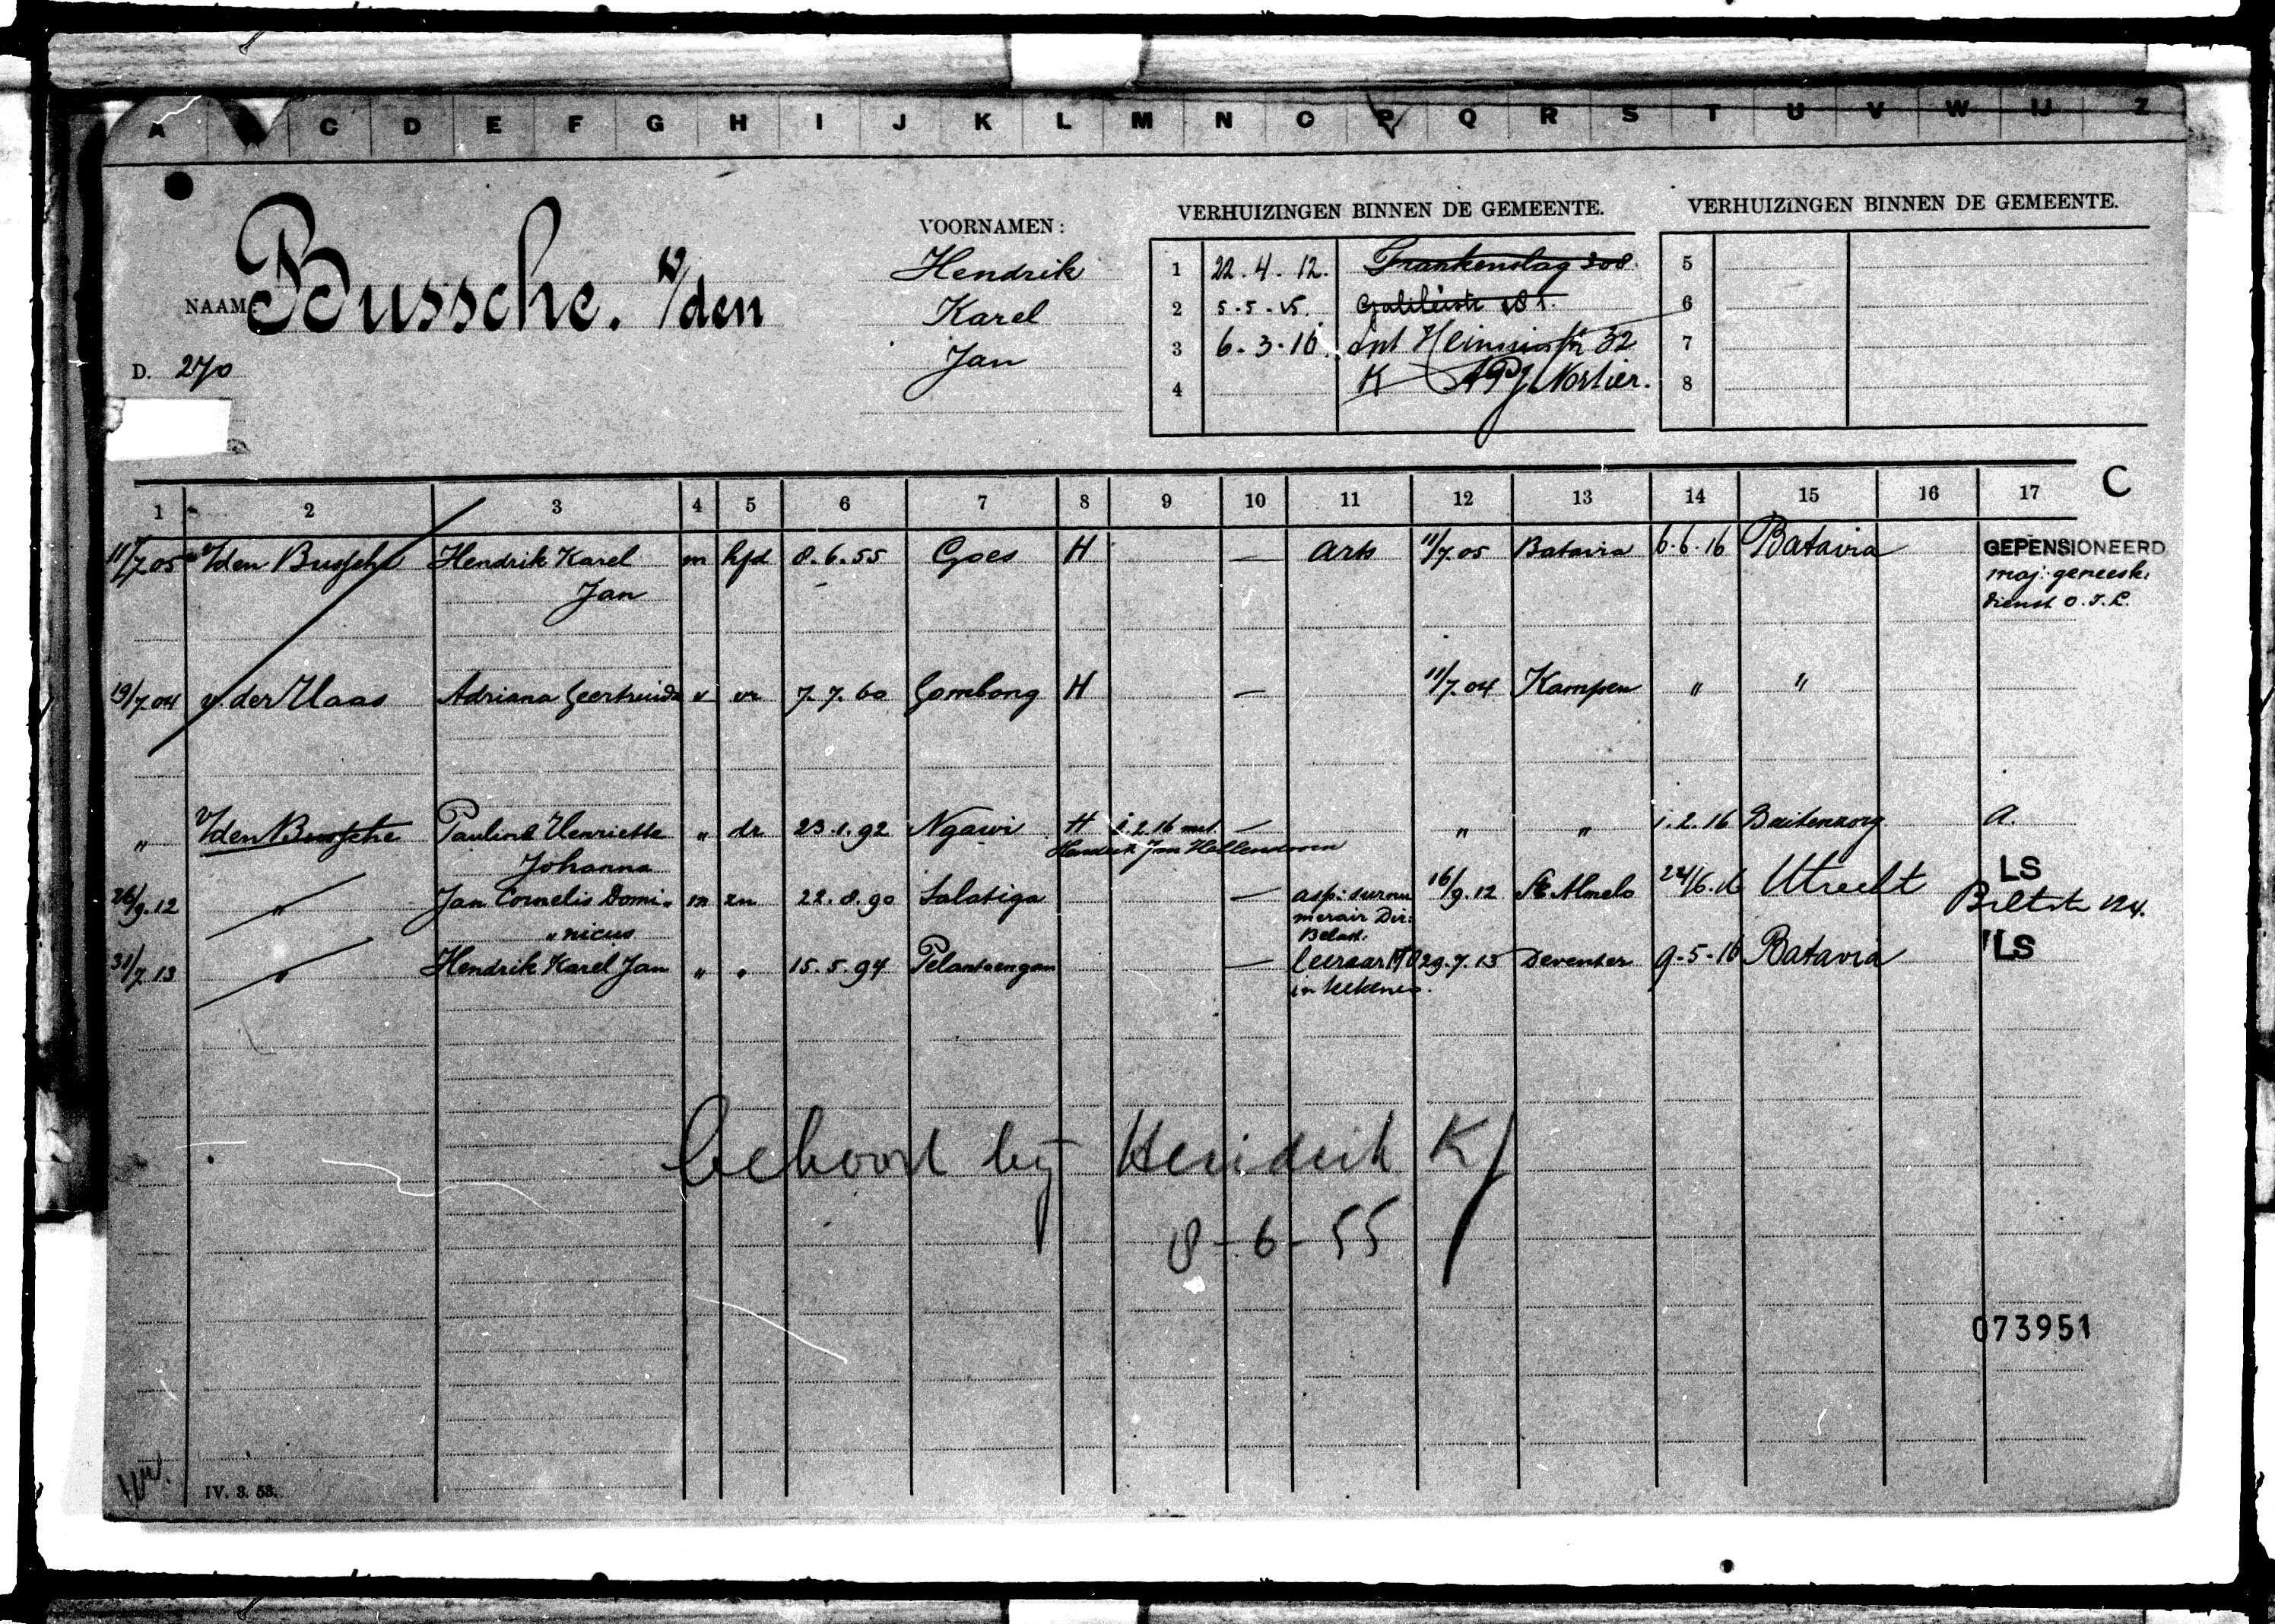 A C D E F G H I J K L M N O P Q R S T U V W IJ Z
NAAM Bussche. v/den
D. 270
VOORNAMEN:
Hendrik
Karel
Jan
VERHUIZINGEN BINNEN DE GEMEENTE.
1 22.4.12. Frankenslag 308.
2 5-5-15. Galileistr
3 6-3-16. Ant Heinsiusstr 32
4 K Nortier.
VERHUIZINGEN BINNEN DE GEMEENTE.
5
6
7
8
C
1 2 3 4 5 6 7 8 9 10 11 12 13 14 15 16 17
11/7.05 v/den Bussche Hendrik Karel m hfd 8.6.55 Goes H — Arts 11/7.05 Batavia 6.6.16 Batavia GEPENSIONEERD
Jan maj. geneesk.
dienst O.I.L.
19/7.04 v.der Maas Adriana Geertruida v vr 7.7.60 Gombong H — 11/7.04 Kampen " "
" v/den Bussche Pauline Henriette " dr 23.1.92 Ngawi H 1.2.16 met — " " 1.2.16 Buitenzorg A.
Johanna Hendrik Jan Hellendoorn
26/9.12 " Jan Cornelis Domi- m zn 22.8.90 Salatiga — asp: surnu 16/9.12 St Almelo 24/6.16 Utrecht LS
"nicus merair Dir: Biltstr 124.
Belast:
31/7.13 " Hendrik Karel Jan " " 15.5.94 Pelantoengan — leeraar MO 29.7.13 Deventer 9-5-16 Batavia "LS
in teekenen.
behoort bij Hendrik KJ
8-6-55
073951
IV. 3. 53.